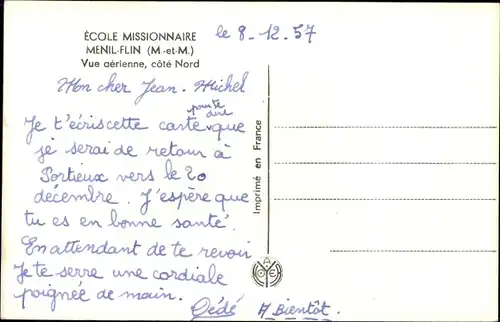 ÉCOLE MISSIONNAIRE
MENIL-FLIN (M.-et-M.)
Vue aérienne, côté Nord
le 8-12.57
Mon cher Jean-Michel
pour te
dire
Je t'écris cette carte que
je serai de retour à
Portieux vers le 20
décembre. J'espère que
tu es en bonne santé.
En attendant de te revoir
Je te serre une cordiale
poignée de main.
Dédé
A Bientôt.
Imprimé en France